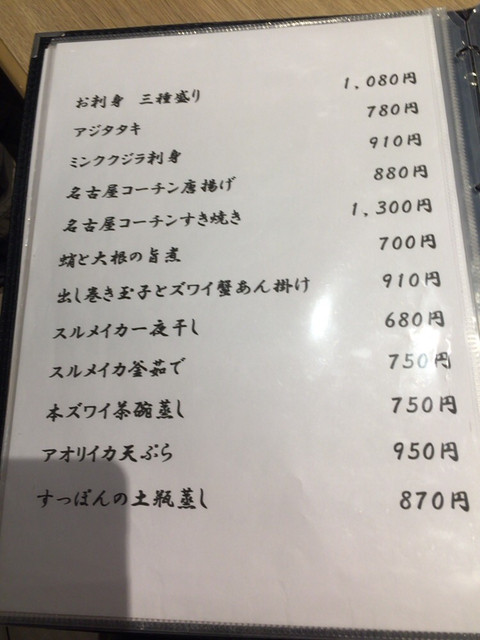 お刺身 三種盛り 1,080円
アジタタキ 780円
ミンククジラ刺身 910円
名古屋コーチン唐揚げ 880円
名古屋コーチンすき焼き 1,300円
蛸と大根の旨煮 700円
出し巻き玉子とズワイ蟹あん掛け 910円
スルメイカ一夜干し 680円
スルメイカ釜茹で 750円
本ズワイ茶碗蒸し 750円
アオリイカ天ぷら 950円
すっぽんの土瓶蒸し 870円